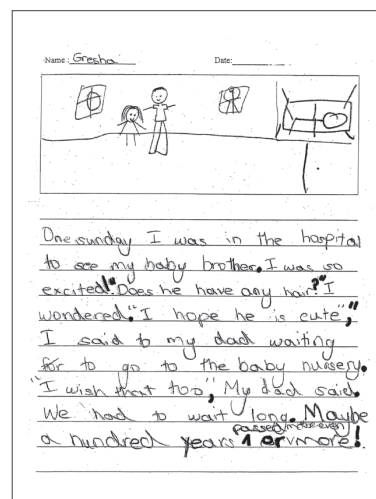 Name: Gresha Date:
One sunday I was in the hospital
to see my baby brother. I was so
excited!"Does he have any hair?" I
wondered. "I hope he is cute",
I said to my dad waiting
to go to the baby nursery.
"I wish that too", My dad said.
We had to wait long. Maybe
passed/maybe even
a hundred years or more!